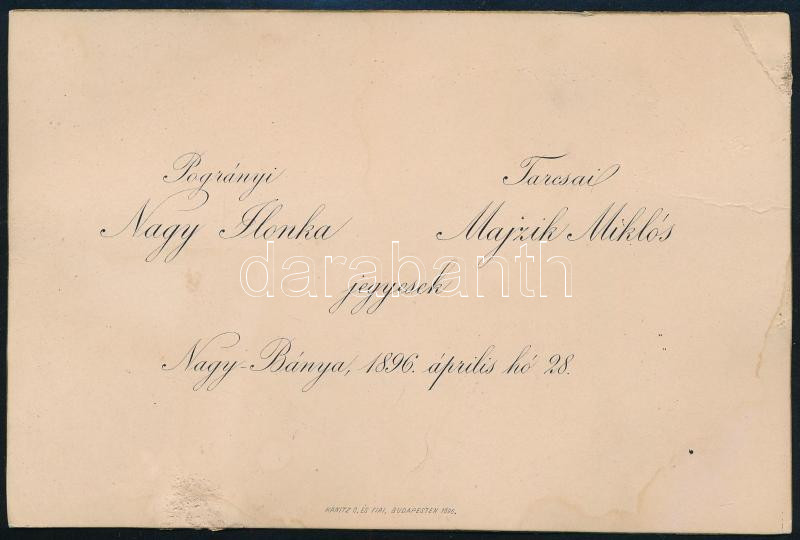 Pogrányi Tarcsai
Nagy Ilonka Majzik Miklós
darabanth
jegyesek
Nagy-Bánya, 1896. április hó 28.
KANITZ C. ÉS FIAI, BUDAPESTEN 1896.